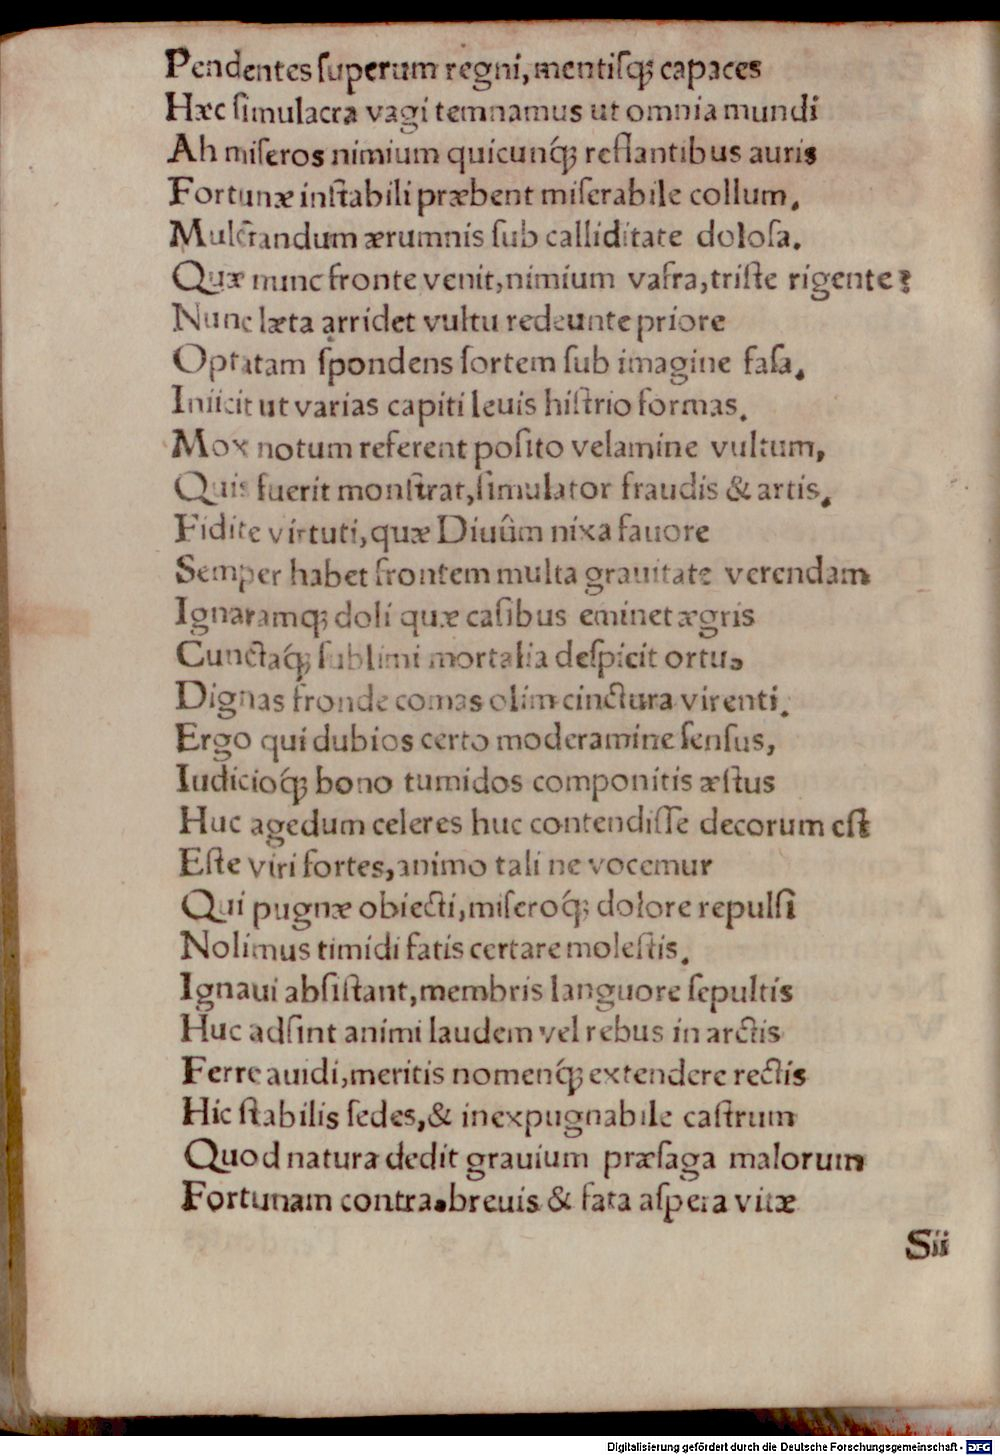 Pendentes ſuperum regni, mentiſqꝫ capaces
Hæc ſimulacra vagi temnamus ut omnia mundi
Ah miſeros nimium quicunqꝫ́ reflantibus auris
Fortunæ inſtabili præbent miſerabile collum.
Mulctandum ærumnis ſub calliditate doloſa.
Quæ nunc fronte venit, nimium vafra, triſte rigente?
Nunc læta arridet vultu redeunte priore
Optatam ſpondens ſortem ſub imagine faſa.
Iniicit ut varias capiti leuis hiſtrio formas.
Mox notum referent poſito velamine vultum,
Quis fuerit monſtrat, ſimulator fraudis & artis.
Fidite virtuti, quæ Diuûm nixa fauore
Semper habet frontem multa grauitate verendam
Ignaramqꝫ doli quæ caſibus eminet ægris
Cunctaqꝫ́ ſublimi mortalia deſpicit ortu.
Dignas fronde comas olim cinctura virenti.
Ergo qui dubios certo moderamine ſenſus,
Iudicioqꝫ́ bono tumidos componitis æſtus
Huc agedum celeres huc contendiſſe decorum eſt
Eſte viri fortes, animo tali ne vocemur
Qui pugnæ obiecti, miſeroqꝫ́ dolore repulſi
Nolimus timidi fatis certare moleſtis.
Ignaui abſiſtant, membris languore ſepultis
Huc adſint animi laudem vel rebus in arctis
Ferre auidi, meritis nomenqꝫ́ extendere rectis
Hic ſtabilis ſedes, & inexpugnabile caſtrum
Quod natura dedit grauium præſaga malorum
Fortunam contra. breuis & fata aſpera vitæ
Sii
Digitalisierung gefördert durch die Deutsche Forschungsgemeinschaft - DFG